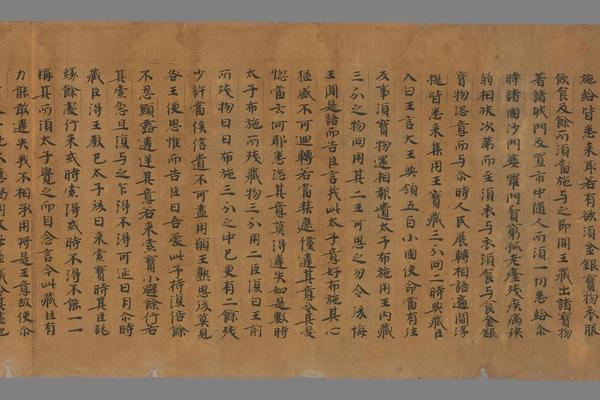 施給皆悉來取若有欲須金銀寶物衣服
飲食及餘所須當施与之即開王藏出諸寶物
著諸城門及置市中随人所須一切悉給尒
時諸國沙門婆羅門貧窮孤老癃残疾病
相扶次第而至須衣与衣須食与食金銀
寶物恣意而与尒時人民展轉相語遍閻浮
提皆悉來集用王寶藏三分向二時典藏臣
入白王言大王典領五百小國使命當有往
及事須寶物還相報遺太子布施用王内藏
三分之物向用其二王可思之勿令後悔
王聞是語而告臣言我此太子意好布施其心
猛盛不可迴轉若當禁遮懼違其意令其憂
惱當云何耶悉恣其意莫得違失如是數時
太子布施所残藏物三分用二臣復白王前
所残物日日布施三分之中已更有二餘残
少許當俟信遺不可盡用願王熟思後莫見
咎王便思惟而告臣曰吾愛此子特復倍餘
不忍顯露違逆其意若來索寶小避餘行若
其索急且須与之乍得不得可延日月尒時
藏臣得王教已太子後日來索寶時其臣託
緣餘處行來或時索得或時不得不能一一
稱其所須太子覺之而自念言今此藏臣有
力能敢違失我不相承用將是王意故使尒